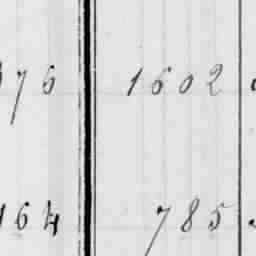 76 1602
164 785